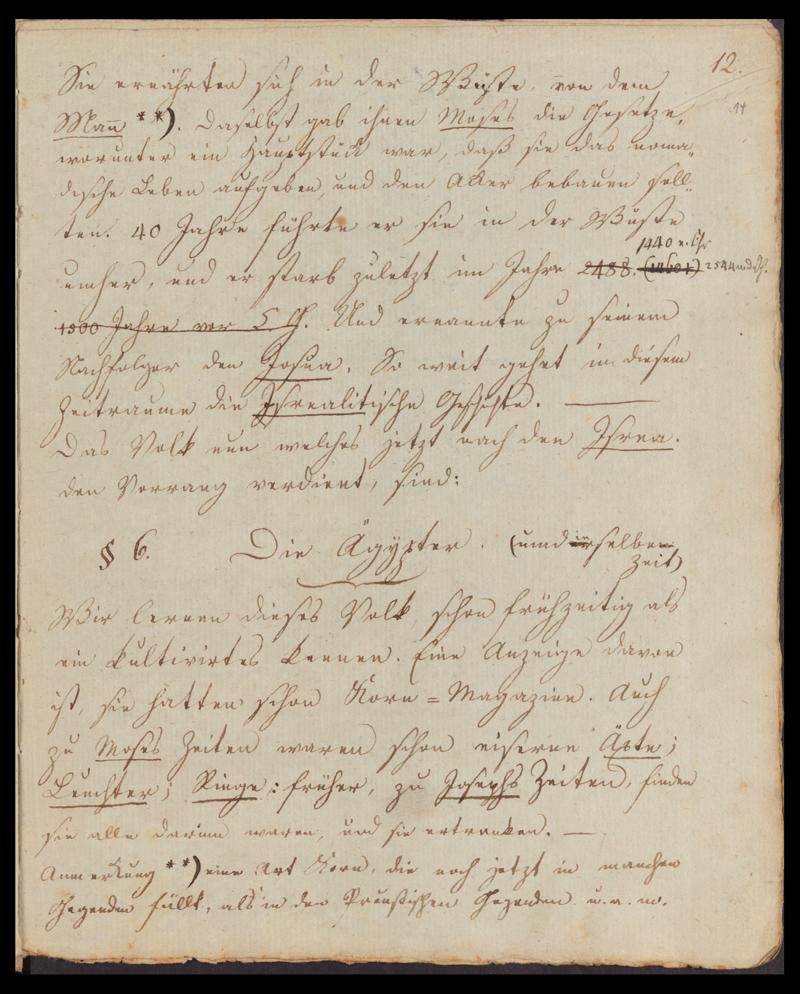 12.
14
Sie ernährten sich in der Wüste, von dem
Man̅ **). Daselbst gab ihnen Moses die Gesetze,
worunter ein Hauptstück war, daß sie das noma-
dische Leben aufgeben, und den Acker bebauen soll-
ten. 40 Jahre führte er sie in der Wüste
1440 v. Chr
umher, und er starb zuletzt im Jahre 2488. 2544 n d Sch.
1500 Jahre vor C G. Und ernannte zu seinem
Nachfolger den Josua. So weit gehet in diesem
Zeitraume die Isrealitische Geschichte. —
Das Volk nun welches jetzt nach den Isrea.
den Vorrang verdient, sind:
§ 6. Die Ägypter. (um dieselbe
Zeit)
Wir lernen dieses Volk schon frühzeitig als
ein kultivirtes kennen. Eine Anzeige davon
ist, sie hatten schon Korn = Magazine. Auch
zu Moses Zeiten waren schon eiserne Äxte;
Leuchter; Ringe: früher, zu Josephs Zeiten, finden
sie alle darinn waren, und sie ertranken. —
Anmerkung **) eine Art Korn, die noch jetzt in manchen
Gegenden fällt, als in den Preußischen Gegenden u. a. m.